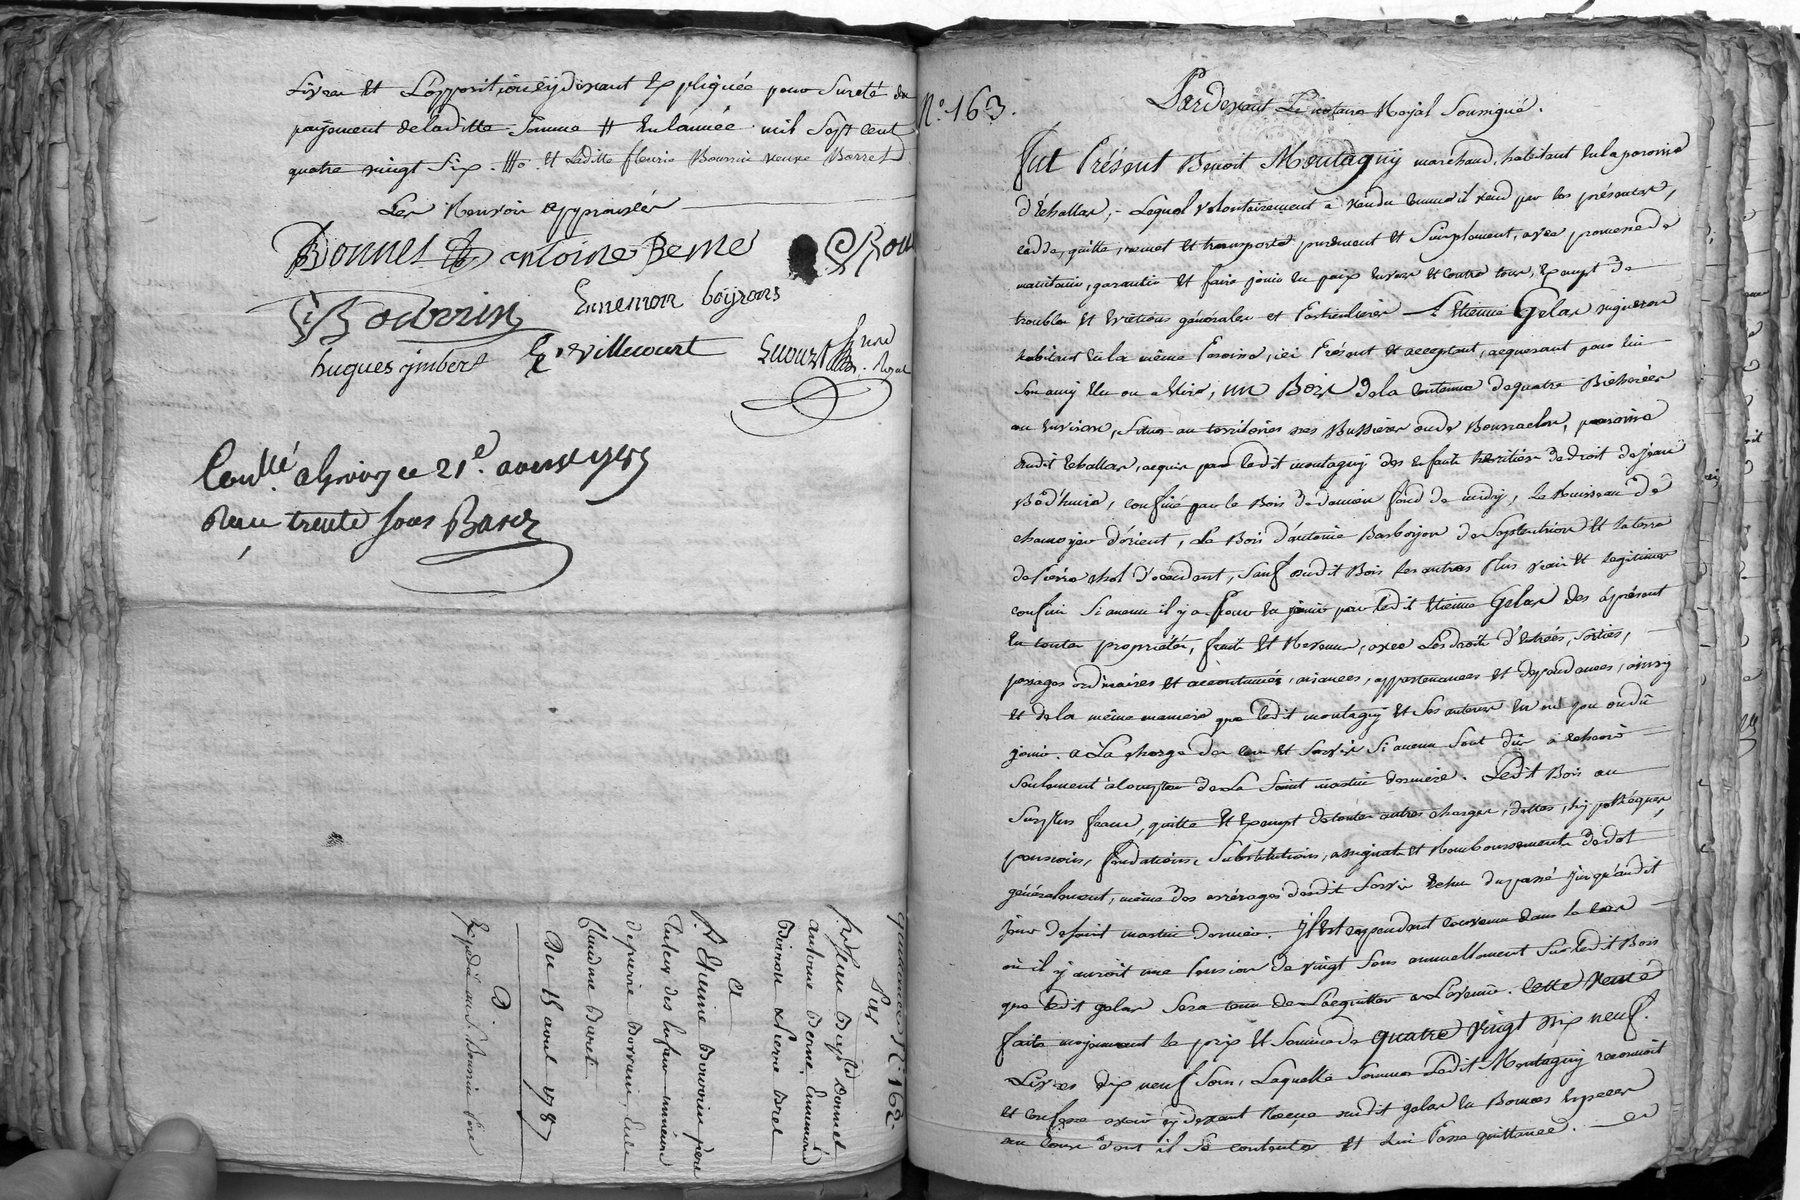 Livres et L'opposition cy devant Expliquée pour sureté du
payement de laditte somme # En l'année mil sept cent
quatre vingt six. et Laditte fleurie Bourrin veuve Barret
Les Renvoir approuvés
Bonnet antoine Berne
Bourrin Ennemon boijrons
hugues jmbert Villecourt
Royal
Con.llé ce 21e. avril
Reçu trente sous Baret
quittance N.o 162
Par
Bonnet
antoine Berne, Ennemond
Boiron & Pierre Bret
A
S.r Etienne Bourrin père
Tuteur des Enfans mineurs
de pierre Bourrin, Et de
Claudine Barret
Du 15 avril 1787
Expédié au S. Bourrin père
N.o 163.
Pardevant Le notaire Royal Soussigné.
fut Présent Benoit Montagny marchand, habitant en la paroisse
d'Echallas, Lequel volontairement a vendu comme il vend par les présentes,
cedde, quitte, remet et transporte purement et simplement, avec promesse de
maintenir, garantir et faire jouir en paix envers et contre tous, Exempt de
troubles et Evictions générales et Particulières à Etienne Gelas vigneron
habitant en la même Paroisse, ici Présent et acceptant, acquerant pour lui
son amy Elu ou à Elire, un Bois de la contenue de quatre Bicherées
ou Environ, situé au territoire des Bussieres ou de Bourrachon, paroisse
dudit Echallas, acquis par ledit montagny des enfants héritiers de droit de jean
confiné par le Bois de damien fond de midy, Le Ruisseau de
d'orient, Le Bois d'antoine Barborjon de Septentrion et la terre
de Pierre chol d'occident, sauf dudit Bois Les autres plus vrais et legitimes
confins si aucuns il y a Pour en jouir par ledit Etienne Gelas des àprésent
En toute propriété, fruits et Revenus, avec Les droits d'Entrées, sorties,
passages ordinaires et accoutumés, aisances, appartenances et dependances, ainsy
et de la même maniere que ledit montagny et ses auteurs en ont jou ou dû
jouir. a La charge des cens et servis si aucuns sont dûs à échoir
seulement à compter de La Saint martin derniere. Ledit Bois au
surplus franc, quitte et Exempt de toutes autres charges, dettes, hypothèques,
pensions, fondations, substitutions, assignats et Remboursements de dot
généralement, même des arrérages dudit servis Echus du passé jusqu'audit
jour de saint martin dernier. Il est cependant convenu dans le cas
où il y auroit une Pension de vingt sous annuellement sur ledit Bois
que ledit gelas sera tenu de L'acquitter à L'avenir. Cette vente
faite moyennant le prix et Somme de quatre vingt dix neuf.
Livres dix neuf sous, Laquelle somme Ledit Montagny reconnoit
et confesse avoir cy devant Reçue dudit gelas en Bonnes Especes
au cours dont il se contente et Lui Passe quittance.